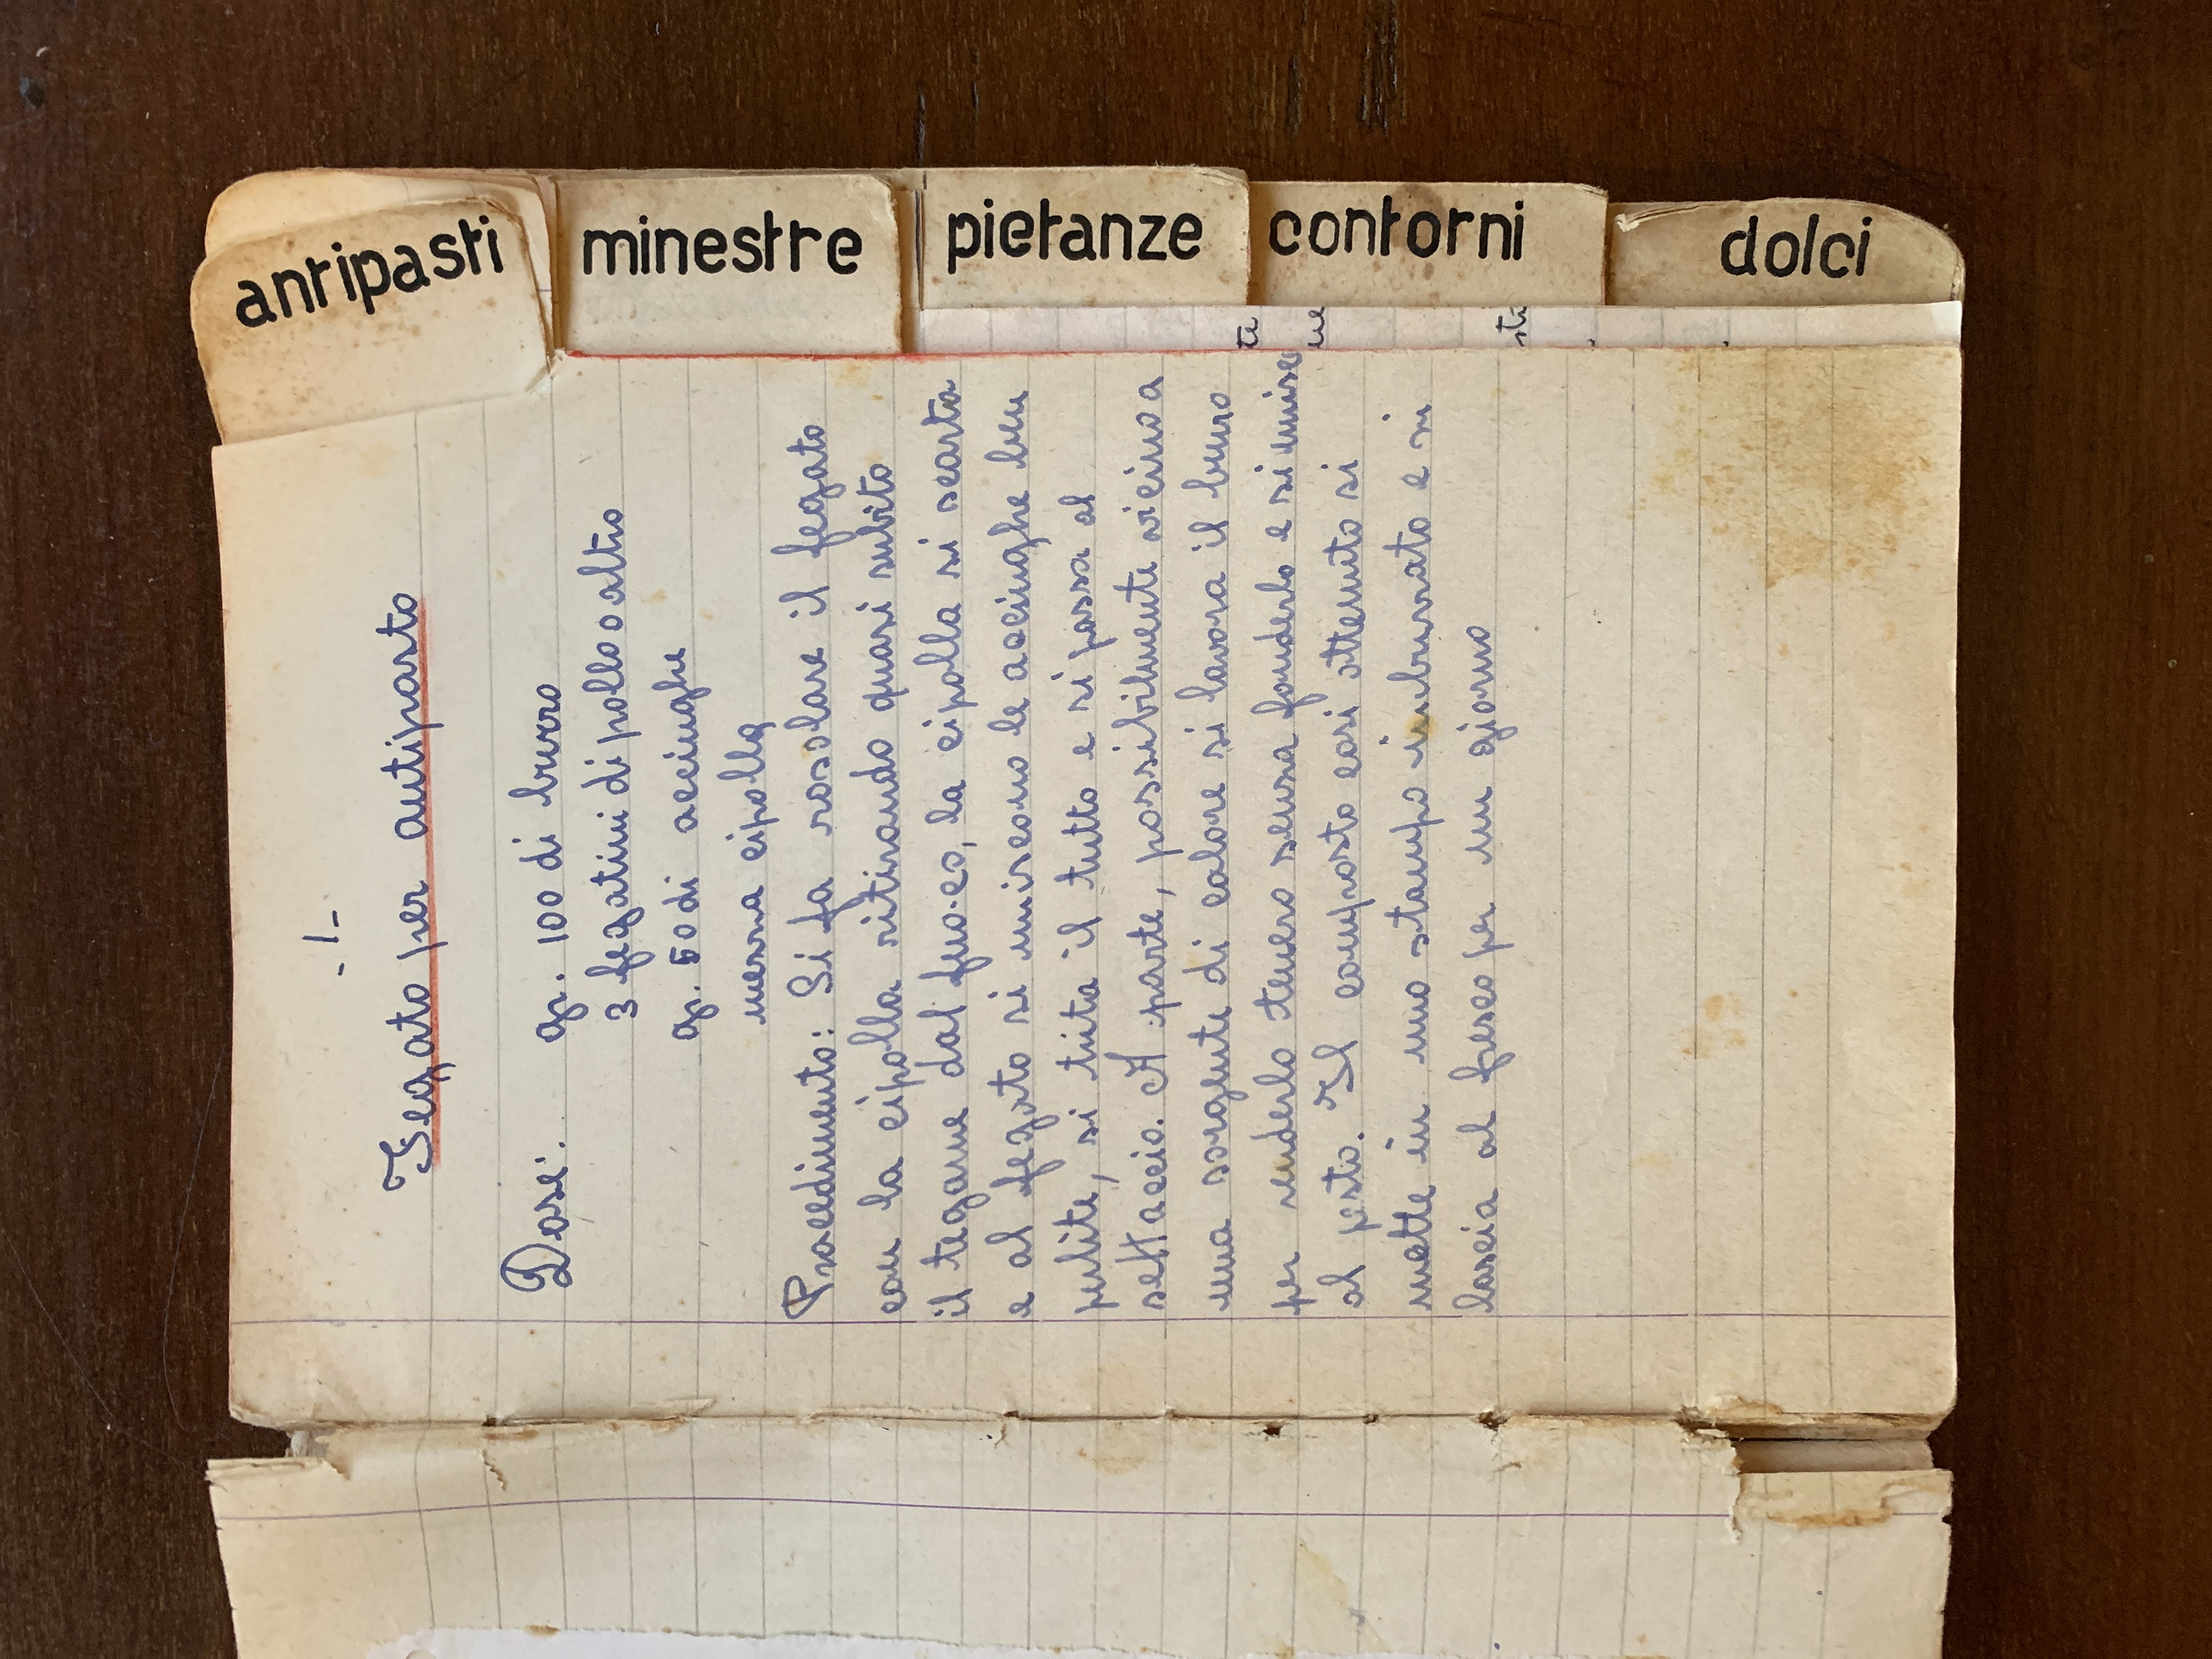 - 1 -
Fegato per antipasto
Dose: gr. 100 di burro
3 fegatini di pollo o altro
gr. 50 di acciughe
mezza cipolla
Procedimento: Si fa rosolare il fegato
con la cipolla ritirando quasi subito
il tegame dal fuoco, la cipolla si scarta
e al fegato si uniscono le acciughe ben
pulite, si trita il tutto e si passa al
settaccio. A parte, possibilmente vicino a
una sorgente di calore si lavora il burro
per renderlo tenero senza fonderlo e si unisce
al pesto. Il composto così ottenuto si
mette in uno stampo imburrato e si
lascia al fresco per un giorno
te
ne
sti
antipasti
minestre
pietanze
contorni
dolci